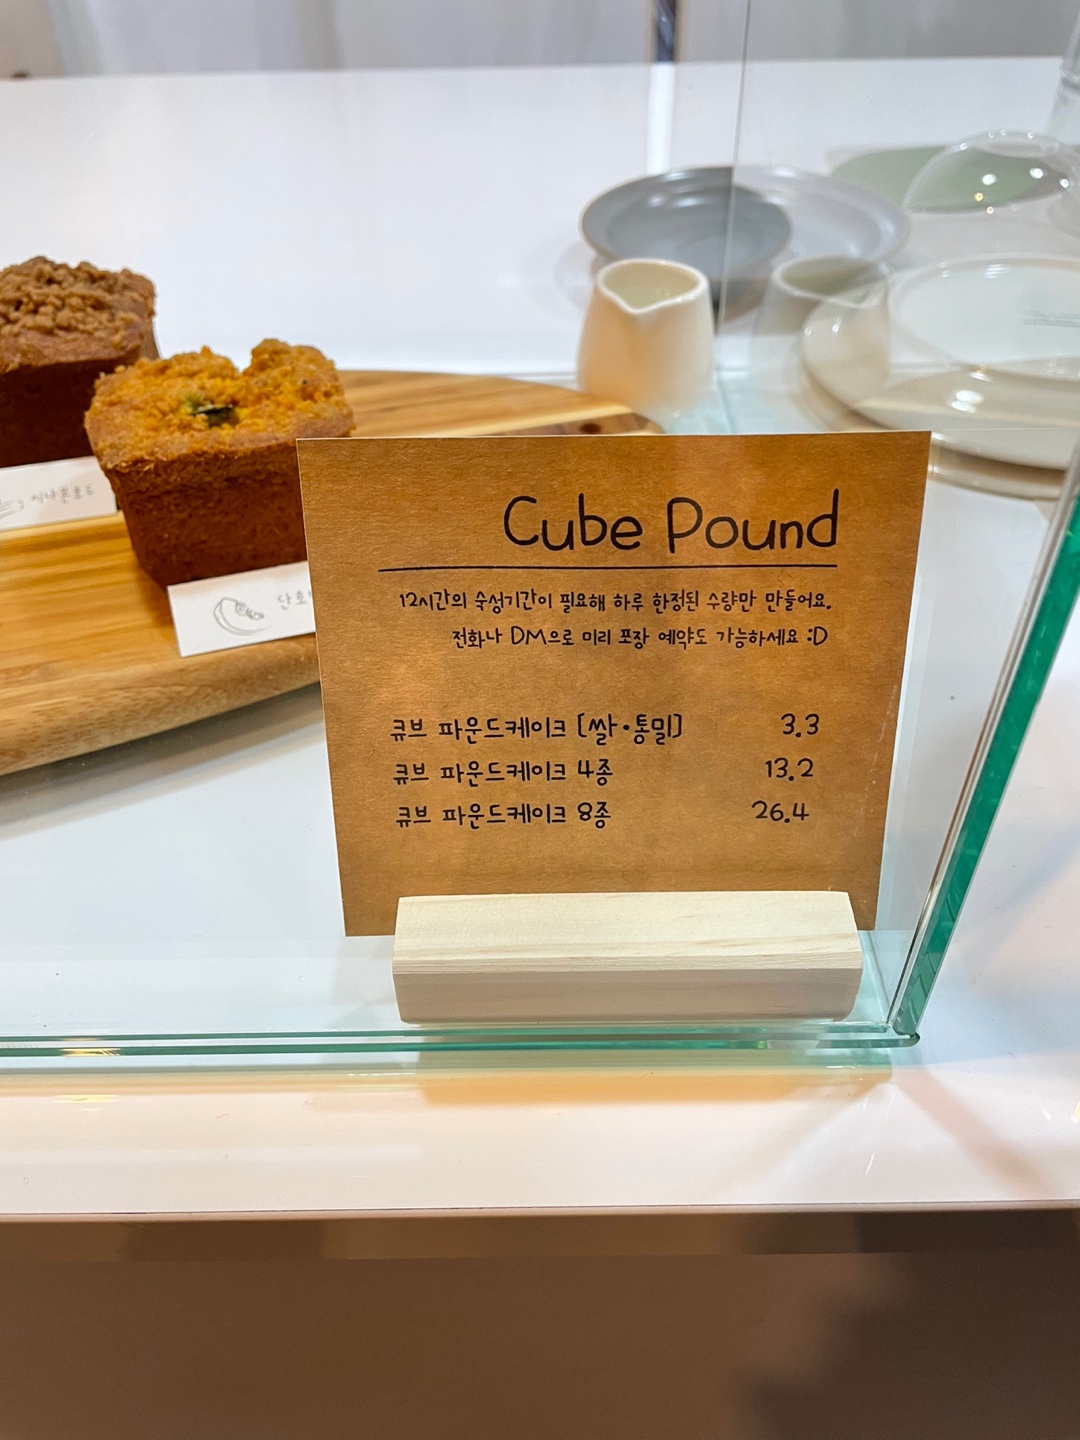 Cube Pound
12시간의 숙성기간이 필요해 하루 한정된 수량만 만들어요.
전화나 DM으로 미리 포장 예약도 가능하세요 :D
큐브 파운드케이크 [쌀·통밀] 3.3
큐브 파운드케이크 4종 13.2
큐브 파운드케이크 8종 26.4
시나몬호두
단호